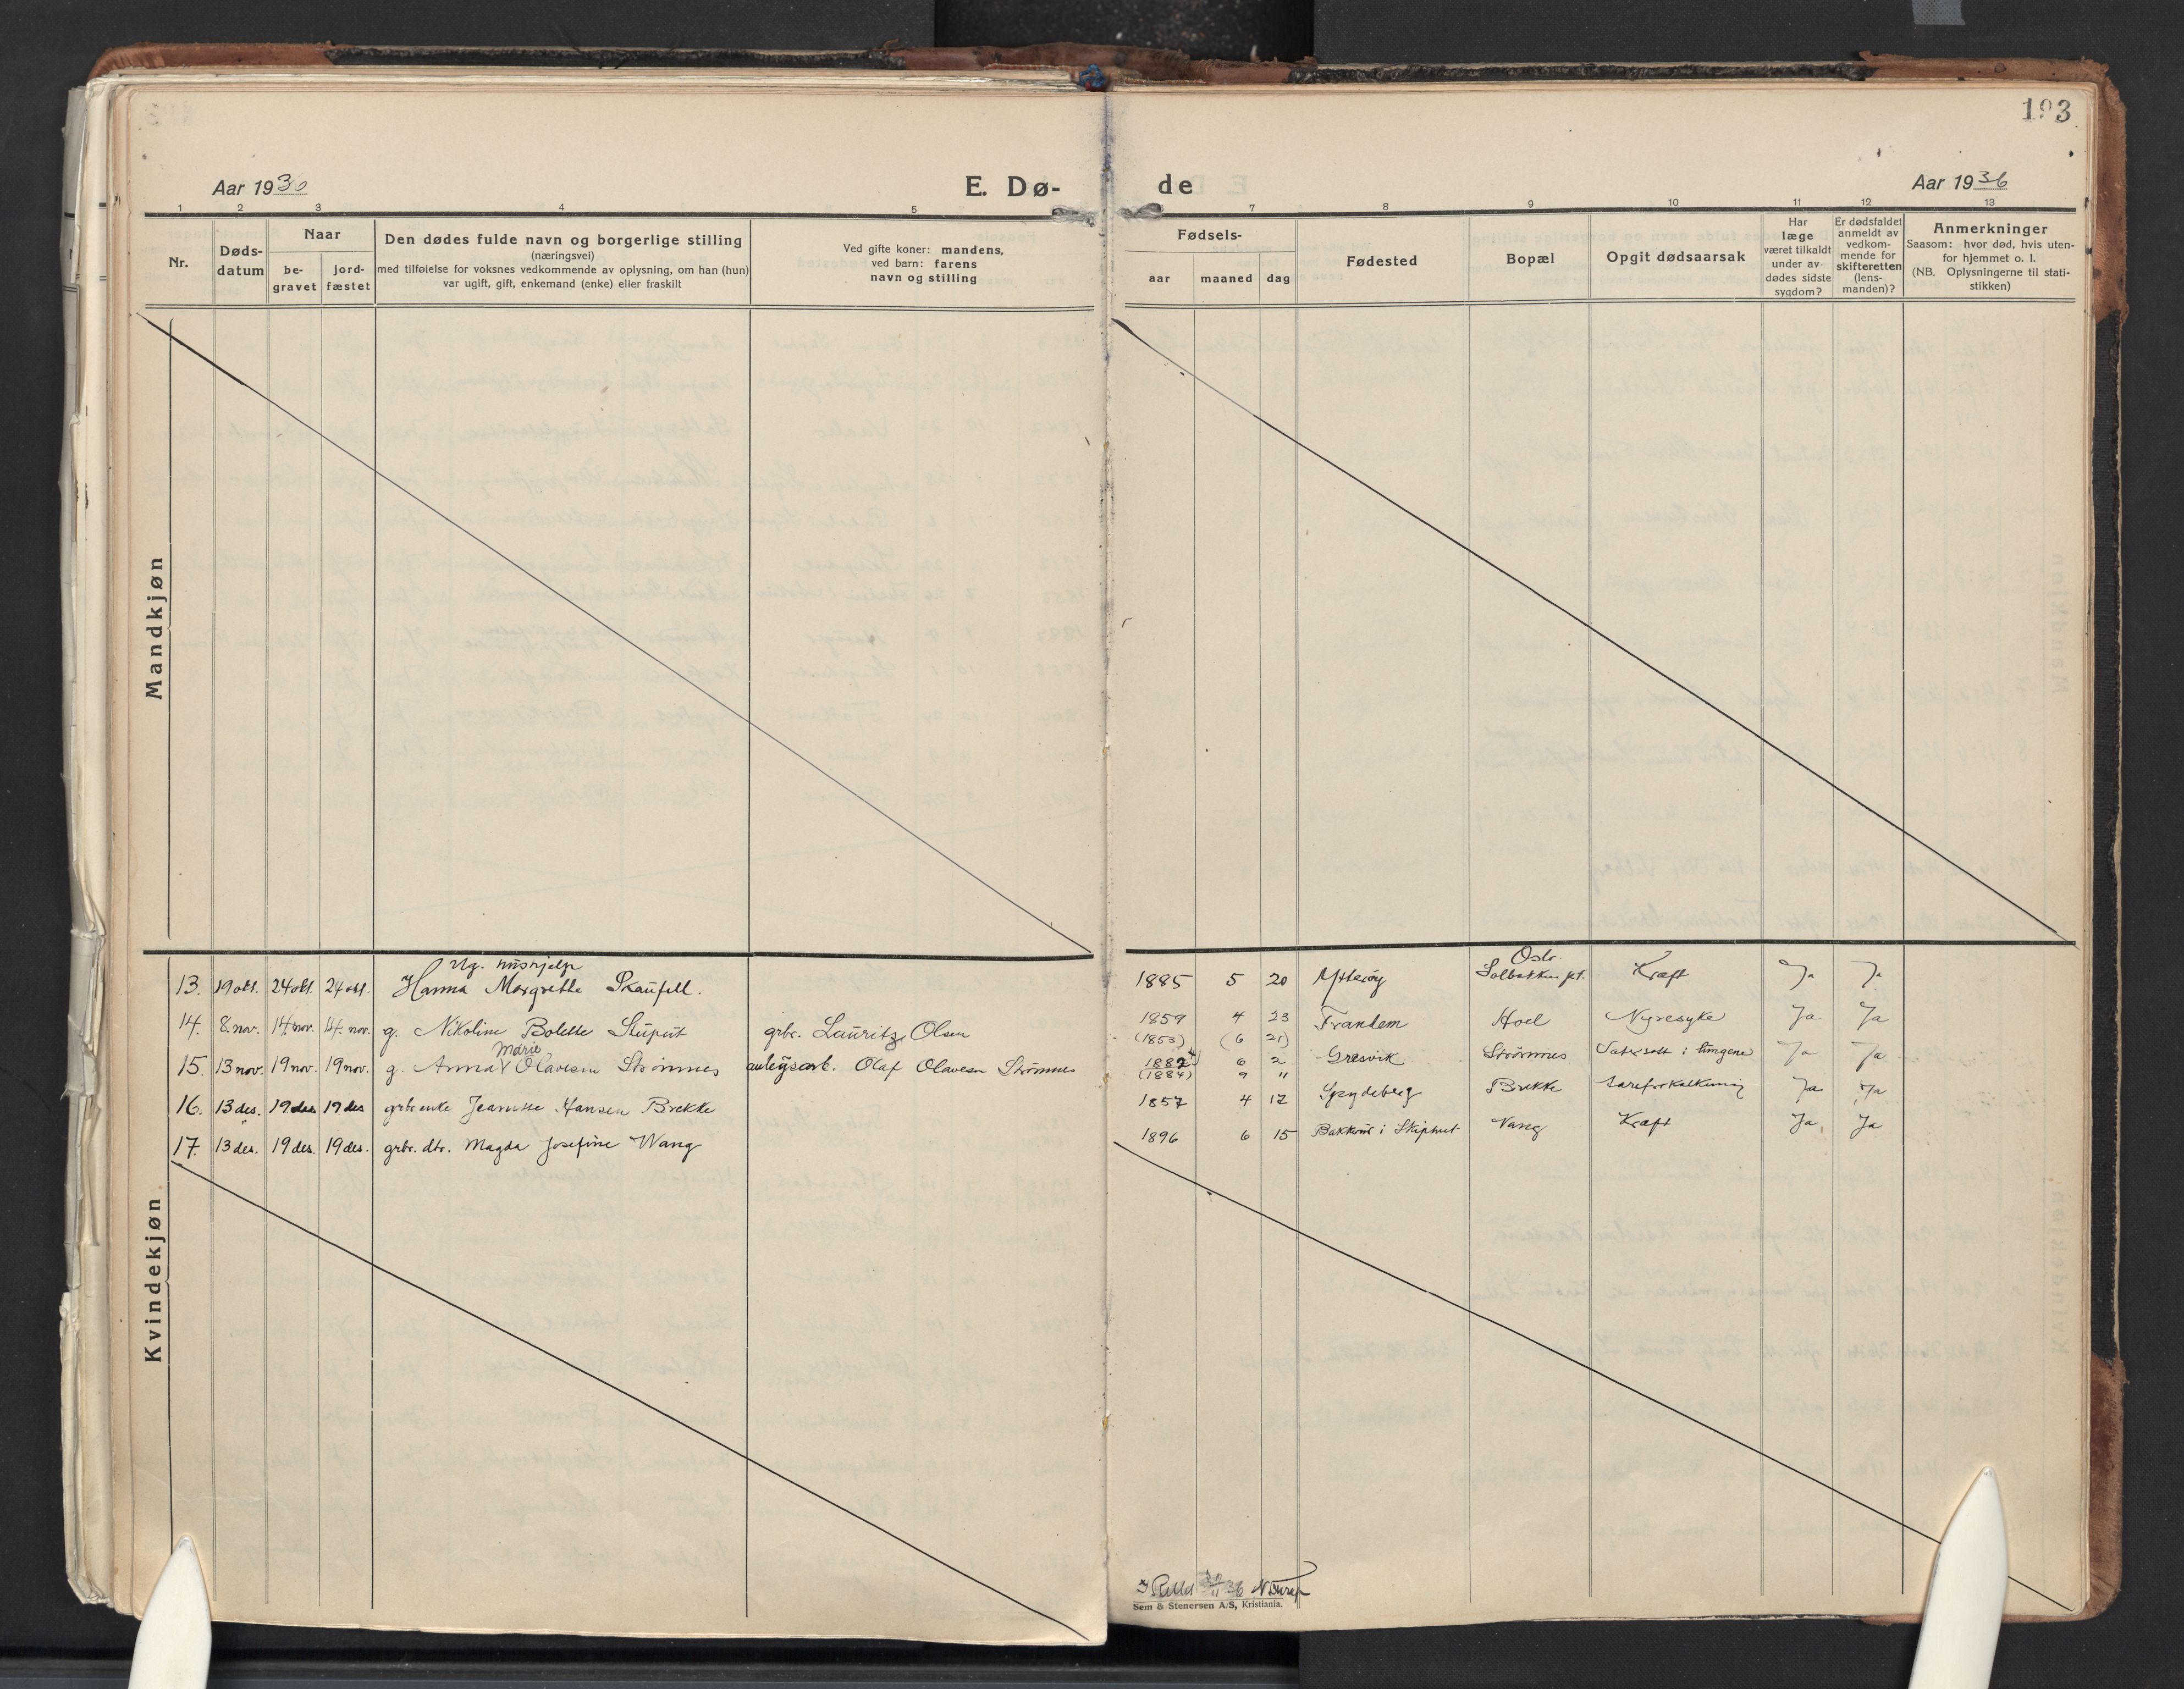 193
Aar 1936
E. Dø-
de
Aar 1936
1 2 3 4 5 6 7 8 9 10 11 12 13
Nr.
Døds-
datum
Naar
be-
gravet
jord-
fæstet
Den dødes fulde navn og borgerlige stilling
(næringsvei)
med tilføielse for voksnes vedkommende av oplysning, om han (hun)
var ugift, gift, enkemand (enke) eller fraskilt
Ved gifte koner: mandens,
ved barn: farens
navn og stilling
Fødsels-
aar maaned dag
Fødested
Bopæl
Opgit dødsaarsak
Har
læge
været tilkaldt
under av-
dødes sidste
sygdom?
Er dødsfaldet
anmeldt av
vedkom-
mende for
skifteretten
(lens-
manden)?
Anmerkninger
Saasom: hvor død, hvis uten-
for hjemmet o. l.
(NB. Oplysningerne til stati-
stikken)
Mandkjøn
Kvindekjøn
Ug. hushjelp
13. 19 okt. 24 okt. 24 okt. Hanna Margrethe Skaufell.
14. 8. nov. 14. nov. 14. nov. g. Nikoline Bolette Stuput grbr. Lauritz Olsen
Marie
15. 13 nov. 19 nov. 19 nov. g. Anna Olavesen Strømnes anlegsarb. Olaf Olavesen Strømnes
16. 13 des. 19 des 19 des grbr enke Jeanette Hansen Brekke
17. 13 des. 19 des. 19 des. grbr. dtr. Magda Josefine Wang
Ostr.
1885 5 20 Ytterøy Solbakken pt. Kræft Ja Ja
1859 4 23 Trandem Hoel Nyresyke Ja Ja
(1853) (6 21)
1882 6 2 Gresvik Strømnes i lungene Ja Ja
(1884) 9 "
1857 4 12 Spydeberg Brekke Aareforkalkning Ja Ja
1896 6 15 Bakkerud i Skiptvet Vang Kræft Ja, Ja
30/11 36
Sem & Stenersen A/S, Kristiania.